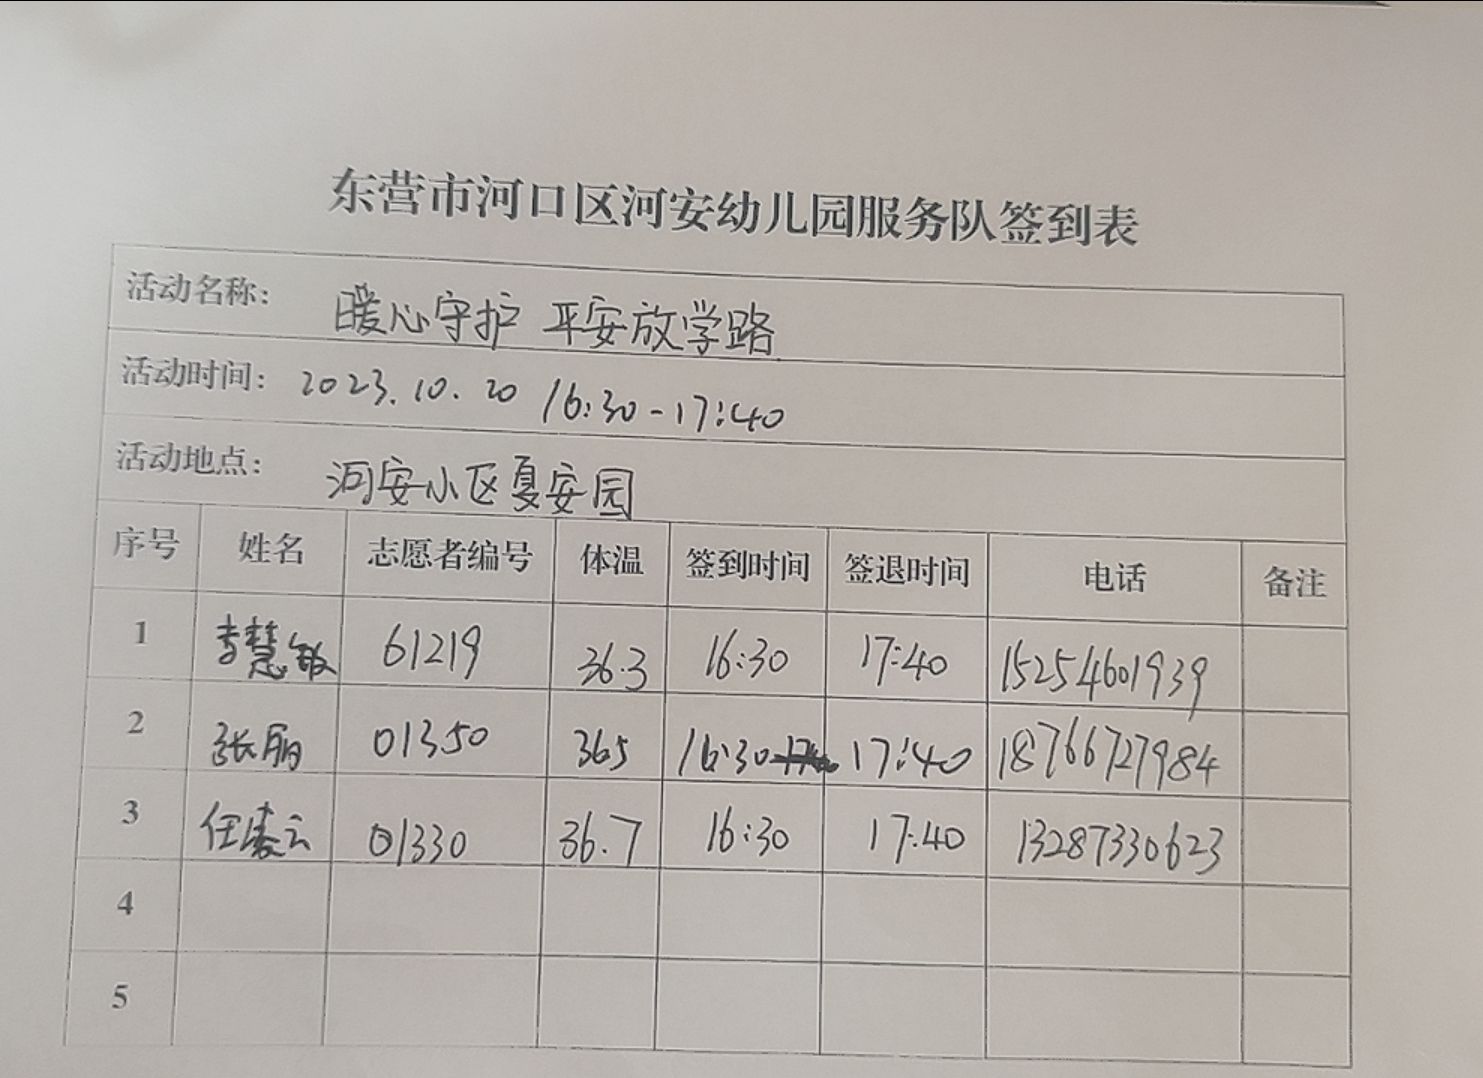 东营市河口区河安幼儿园服务队签到表
活动名称: 暖心守护 平安放学路
活动时间: 2023.10.20 16:30-17:40
活动地点: 河安小区夏安园
序号 姓名 志愿者编号 体温 签到时间 签退时间 电话 备注
1 李慧敏 61219 36.3 16:30 17:40 15254601939
2 张丽 01350 365 16:30 17:40 18766727984
3 任凌云 01330 36.7 16:30 17:40 13287330623
4
5